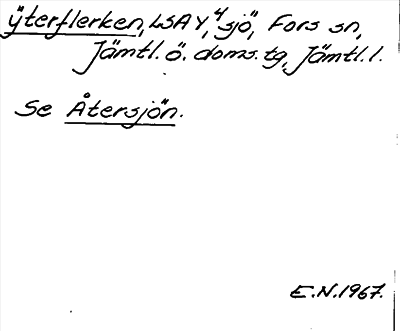 Yterflerken, LSA Y, 4 sjö, Fors sn,
Jämtl. ö. doms. tg, Jämtl. l.
Se Återsjön.
E.N. 1967.